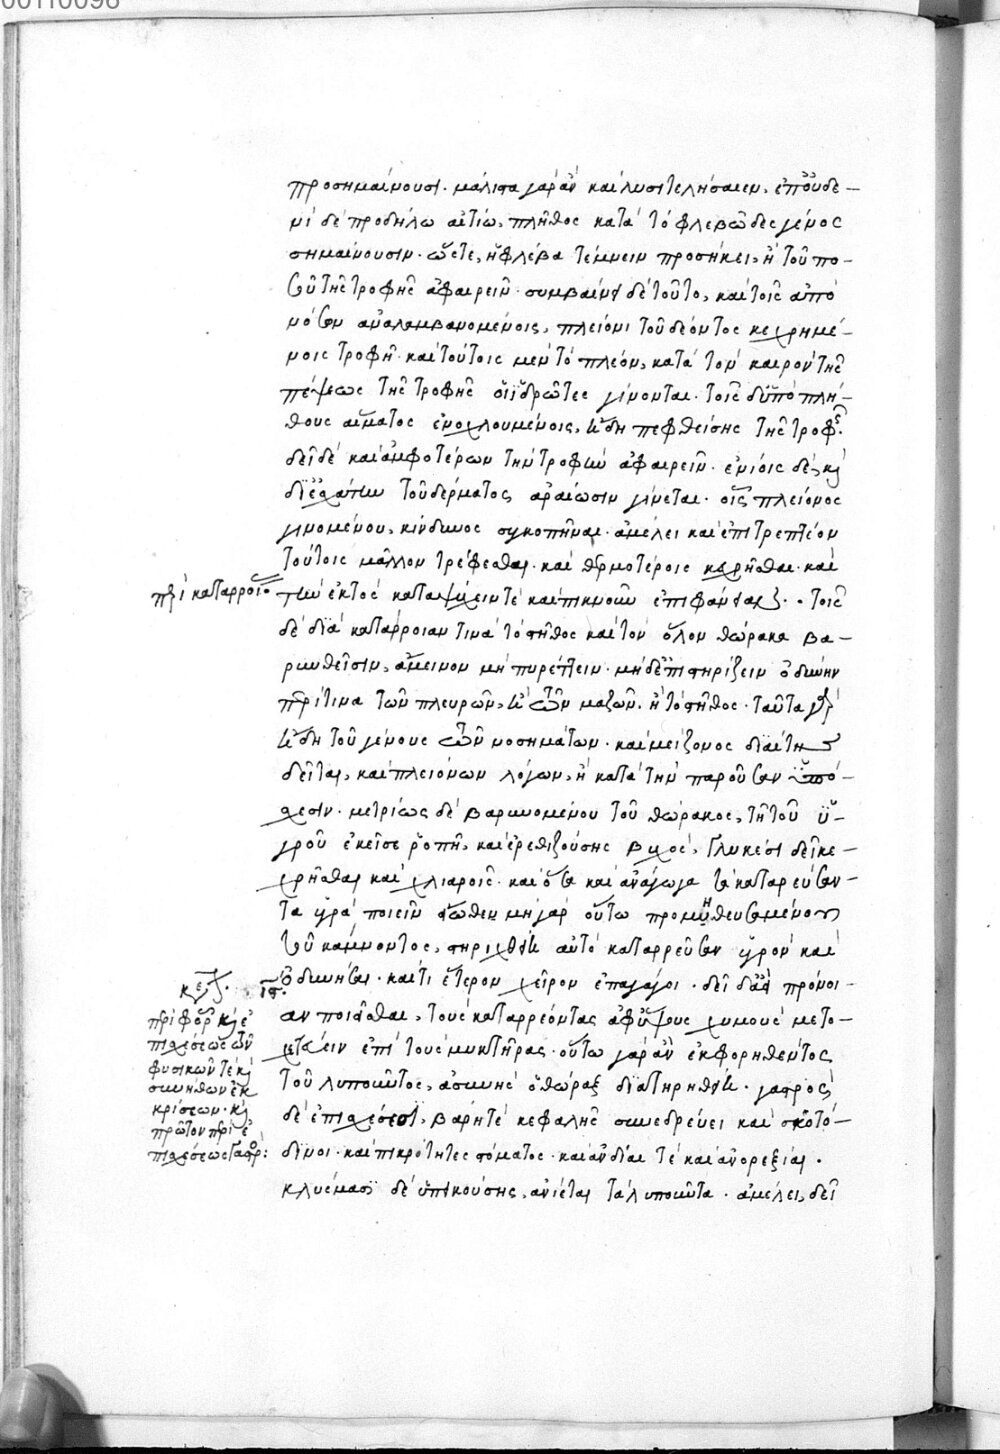 00110096
προσημαίνουσι· μάλιστα γὰρ ἂν καὶ λυσιτελήσαιεν, ἐπ' οὐδε-
νὶ δὲ προδήλω αἰτίω, πλῆθος κατὰ τὸ φλεβῶδες γένος
σημαίνουσιν· ὥστε, ἢ φλέβα τέμνειν προσήκει, ἢ τοῦ πο-
σοῦ τῆς τροφῆς ἀφαιρεῖν· συμβαίνει δὲ τοῦτο, καὶ τοῖς ἀπὸ
νόσων ἀναλαμβανομένοις, πλείονι τοῦ δέοντος κεχρημέ-
νοις τροφῆ· καὶ τούτοις μὲν τὸ πλέον, κατὰ τὸν καιρὸν τῆς
πέψεως τῆς τροφῆς οἱ ἱδρῶτες γίνονται· τοῖς δ' ὑπὸ πλή-
θους αἵματος ἐνοχλουμένοις, ἤδη πεφθείσης τῆς τροφῆς·
δεῖ δὲ καὶ ἀμφοτέρων τὴν τροφὴν ἀφαιρεῖν· ἐνίοις δὲ, κ
δι' ἐσχάτην τοῦ δέρματος ἀραίωσιν γίνεται· οἷς πλείονος
γινομένου, κίνδυνος συγκοπῆναι· ἀμέλει καὶ ἐπιτρεπτέον
τούτοις μᾶλλον τρέφεσθαι· καὶ θερμοτέροις κεχρῆσθαι· καὶ
περὶ καταρροίας
τὴν ἐκτὸς καταψύχειν τὲ καὶ πυκνοῦν ἐπιφάνειαν· τοῖς
δὲ διὰ κατάρροιαν τινὰ τὸ στῆθος καὶ τὸν ὅλον θώρακα βα-
ρυνθεῖσιν, ἄμεινον μὴ πυρέττειν· μὴ δ' ἐπιστηρίζειν ὀδύνην
περί τινα τῶν πλευρῶν, ἢ τῶν μαζῶν· ἢ τὸ στῆθος· ταῦτα γὰρ
ἤδη τοῦ γένους τῶν νοσημάτων· καὶ μείζονος διαίτης
δεῖται, καὶ πλειόνων λόγων, ἢ κατὰ τὴν παροῦσαν ὑπό-
σχεσιν· μετρίως δὲ βαρυνομένου τοῦ θώρακος, τῆ τοῦ ὑ-
γροῦ ἐκεῖσε ῥοπῆ, καὶ ἐρεθιζούσης βηχὸς, γλυκέσι δεῖ κε-
χρῆσθαι καὶ χλιαροῖς· καὶ ὅσα καὶ ἀνάγωγα τὰ καταρεύσαν-
τα ὑγρὰ ποιεῖν εἴωθεν· μὴ γὰρ οὕτω προμηθευσαμένου
τοῦ κάμνοντος, στηριχθὲν αὐτὸ καταρρεῦσαν ὑγρὸν καὶ
κεφ. ιϛ.
ὀδυνήσαι· καί τι ἕτερον χεῖρον ἐπαγάγοι· δεῖ δ' ἀεὶ πρόνοι-
αν ποιεῖσθαι, τοὺς καταρρέοντας ἀφ' ὕψους χυμοὺς μετο-
χετεύειν ἐπὶ τοὺς μυκτῆρας· οὕτω γὰρ ἂν ἐκφορηθέντος
τοῦ λυποῦντος, ἀσινὴς ὁ θώραξ διατηρηθείη· γαστρὸς
δὲ ἐπισχέσεσι, βάρη τὲ κεφαλῆς συνεδρεύει καὶ σκοτό-
δινοι· καὶ πικρότητες στόματος· καὶ ἀνδίαι τὲ καὶ ἀνορεξίαι·
κλύσμασι δὲ ὑπεικούσης, ἀνίεται τὰ λυποῦντα· ἀμέλει, δεῖ
περὶ φορᾶς κ ἐ
πισχέσεως τῶν
φυσικῶν τὲ κ
συνήθων ἐκ
κρίσεων· κ
πρῶτον περὶ ἐ
πισχέσεως γαστρός: